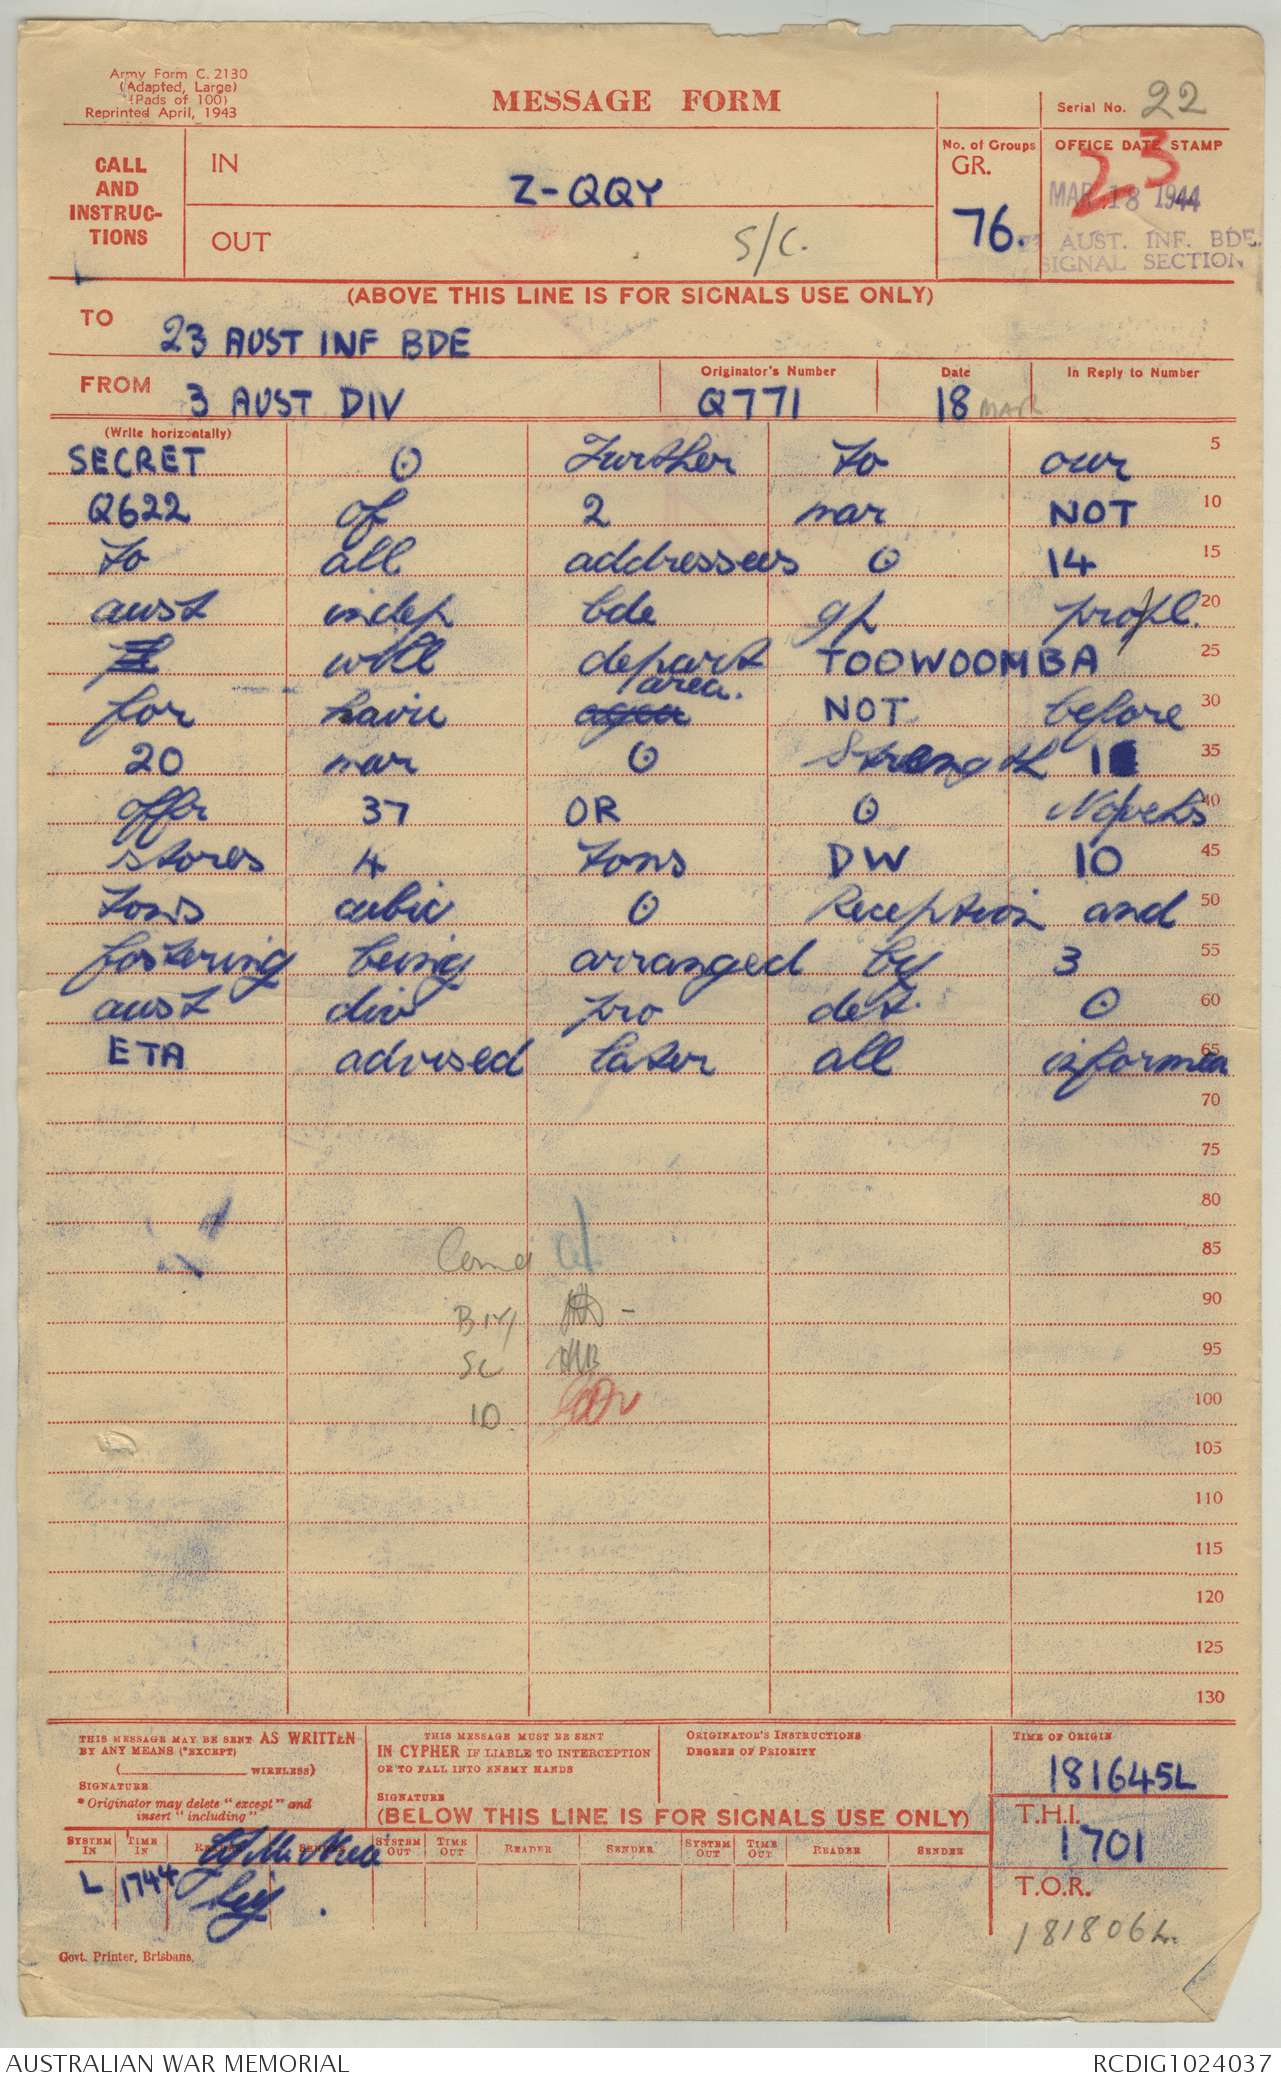 Army Form C. 2130
(Adapted, Large)
(Pads of 100)
Reprinted April, 1943
MESSAGE FORM
Serial No. 22
CALL
AND
INSTRUC-
TIONS
IN
Z-QQY
OUT
S/C.
No. of Groups
GR.
76.
OFFICE DATE STAMP
23
MAR 18 1944
AUST. INF. BDE.
SIGNAL SECTION
(ABOVE THIS LINE IS FOR SIGNALS USE ONLY)
TO 23 AUST INF BDE
FROM 3 AUST DIV
Originator's Number
Q771
Date
18 MAR
In Reply to Number
(Write horizontally)
SECRET ⊙ Further to our 5
Q622 of 2 mar NOT 10
to all addressees ⊙ 14 15
aust indep bde gp 20
will depart TOOWOOMBA 25
area.
for NOT before 30
20 mar ⊙ Strength 35
offr 37 OR ⊙ No/vehs 40
stores 4 tons DW 10 45
tons cubic ⊙ Reception and 50
fostering being arranged by 3 55
aust div pro det. ⊙ 60
ETA advised later all informed 65
70
75
80
Comd 85
BM 90
SC 95
IO. 100
105
110
115
120
125
130
THIS MESSAGE MAY BE SENT AS WRITTEN
BY ANY MEANS (*EXCEPT)
( WIRELESS)
SIGNATURE
* Originator may delete "except" and
insert "including"
THIS MESSAGE MUST BE SENT
IN CYPHER IF LIABLE TO INTERCEPTION
OR TO FALL INTO ENEMY HANDS
SIGNATURE
ORIGINATOR'S INSTRUCTIONS
DEGREE OF PRIORITY
TIME OF ORIGIN
181645L
(BELOW THIS LINE IS FOR SIGNALS USE ONLY)
T.H.I.
1701
SYSTEM IN TIME IN READER SENDER SYSTEM OUT TIME OUT READER SENDER SYSTEM OUT TIME OUT READER SENDER
L 1744
T.O.R.
181806
Govt. Printer, Brisbane.
AUSTRALIAN WAR MEMORIAL
RCDIG1024037